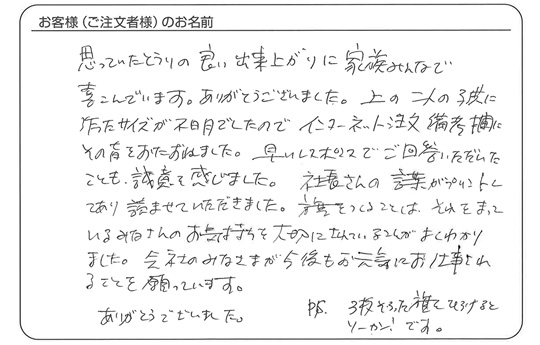 お客様（ご注文者様）のお名前
思っていたとうりの良い出来上がりに家族みんなで
喜こんでいます。ありがとうございました。上の二人の子供に
作ったサイズが不明でしたのでインターネット注文備考欄に
その旨をおたずねました。早いレスポンスでご回答いただいた
ことも誠意を感じました。社長さんの言葉がプリントし
てあり読ませていただきました。をつくることは、それをまって
いるみなさんのお気持ちを大切になさっていることがよくわかり
ました。会社のみなさまが今後もお元気にお仕事され
ることを願っています。
ありがとうございました。
P.S. 3枚そろった旗をひろげると
ソーカン！です。